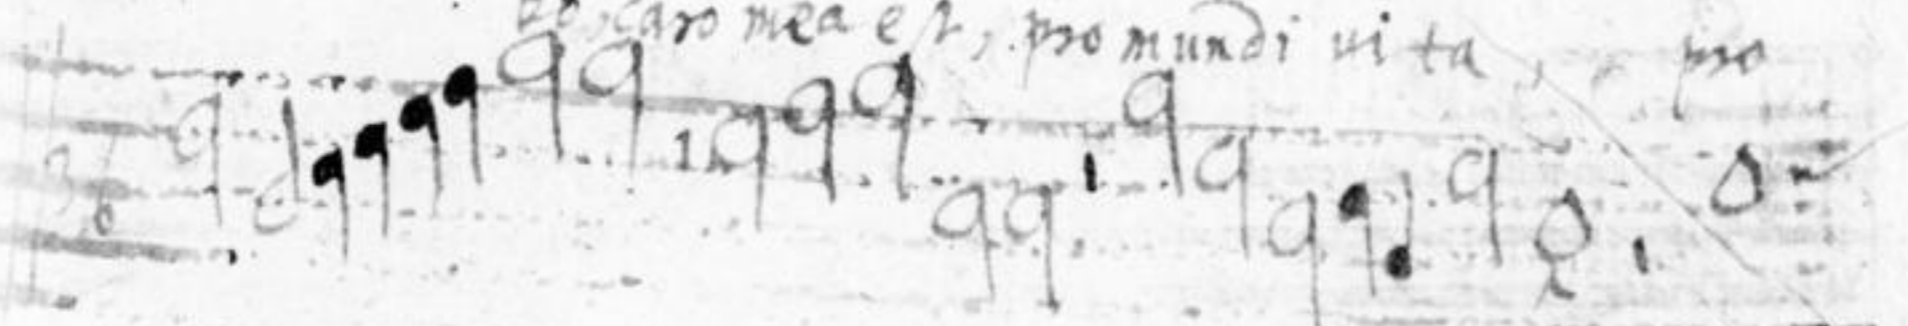 caro mea est, pro mundi vita, pro